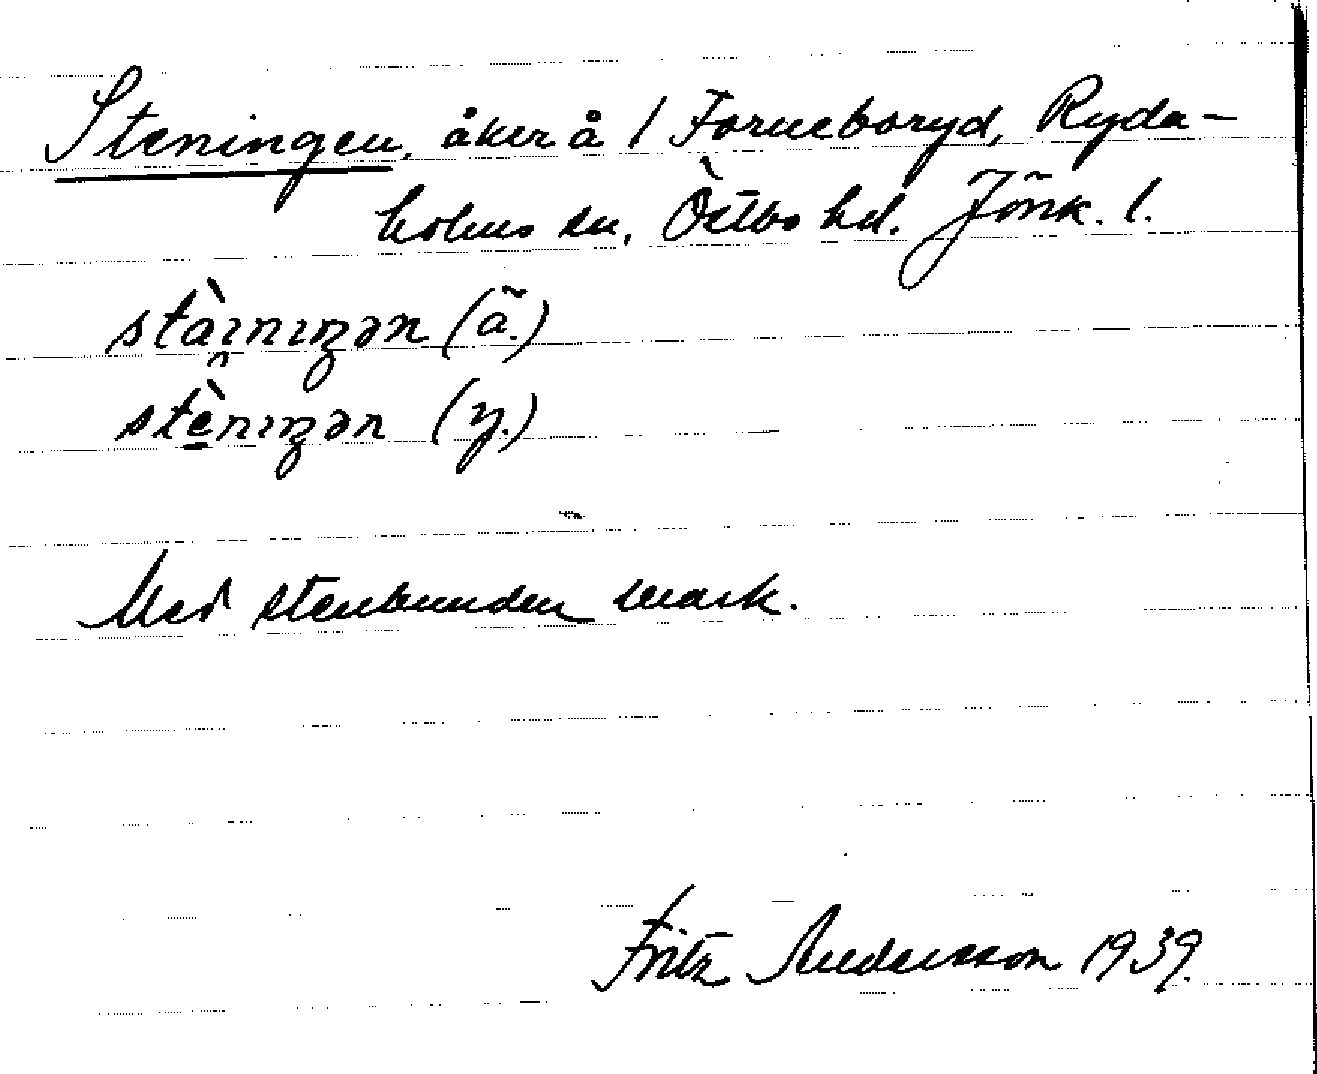 Steningen, åker å 1 Forneboryd, Ryda-
holms sn, Östbo hd. Jönk. l.
stàɪnɪŋən (ä.)
stènɪŋən (y.)
Med stenbunden mark.
Fritz Andersson 1939.